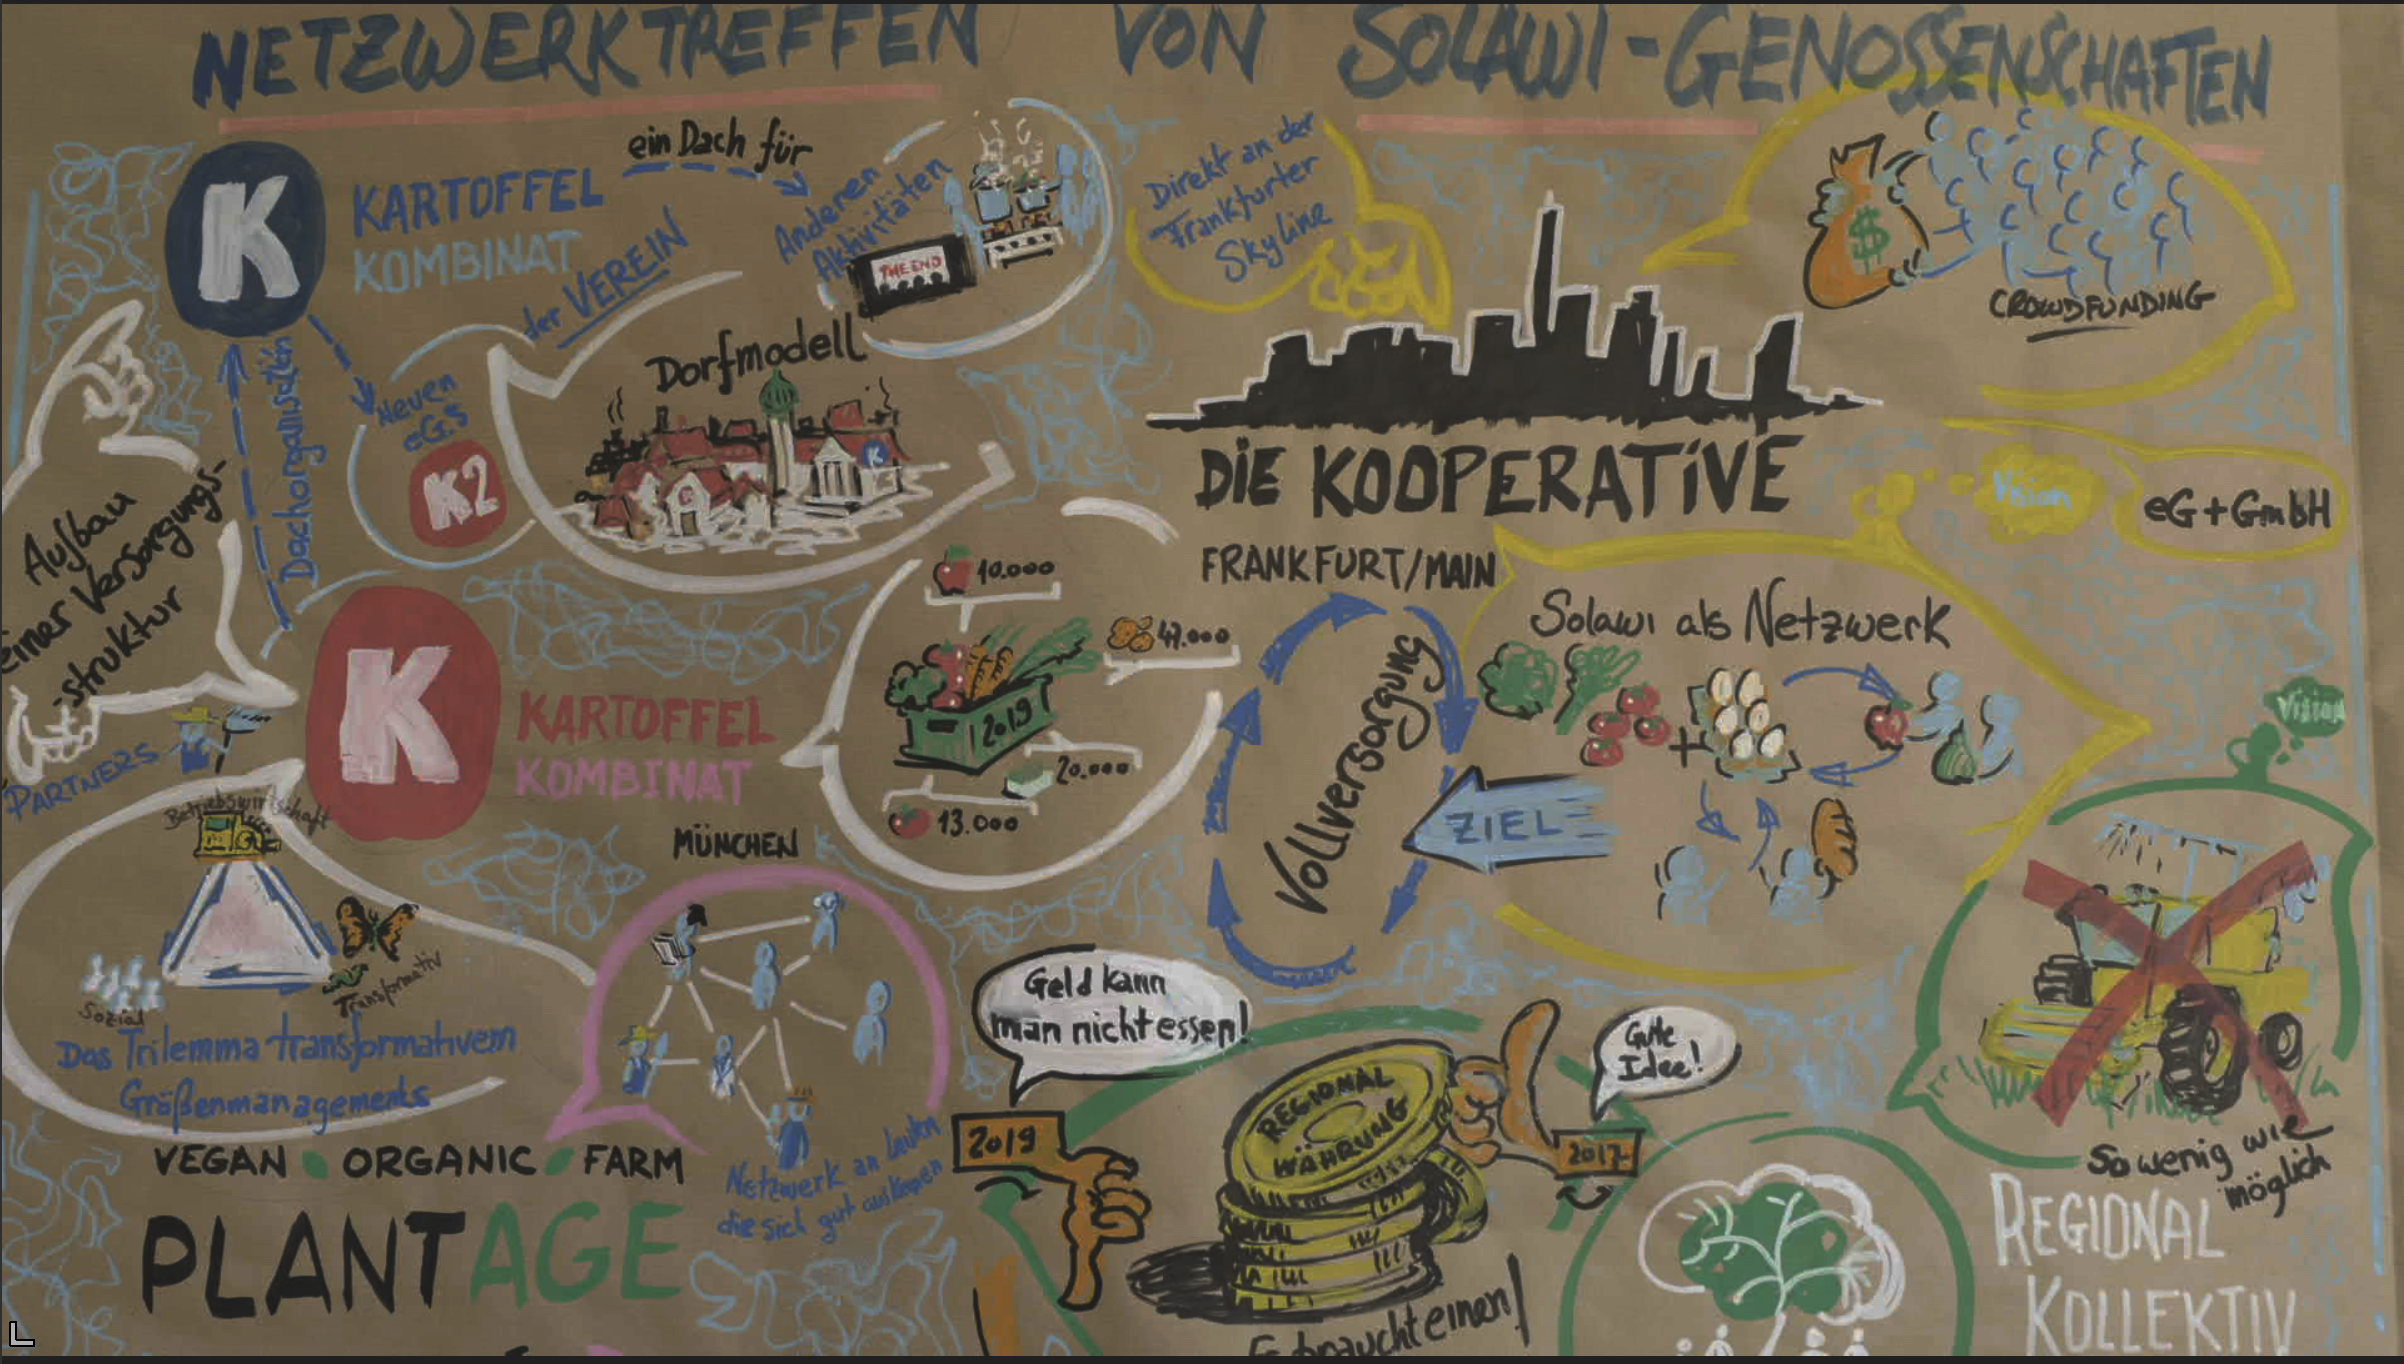 NETZWERKTREFFEN VON SOLAWI-GENOSSENSCHAFTEN
K
KARTOFFEL
KOMBINAT
ein Dach für
Anderen
Aktivitäten
THE END
der VEREIN
Dorfmodell
K
Neuen
eG.s
K2
Dachorganisation
Aufbau
einer Versorgungs-
-struktur
K
KARTOFFEL
KOMBINAT
MÜNCHEN
10.000
47.000
2019
20.000
13.000
PARTNERS
Betriebswirtschaft
Sozial
Transformativ
Das Trilemma transformativem
Größenmanagements
Direkt an der
Frankfurter
Skyline
$
CROWDFUNDING
DiE KOOPERATiVE
FRANKFURT/MAIN
Vision
eG+GmbH
Solawi als Netzwerk
+
Vollversorgung
ZIEL
Vision
So wenig wie
möglich
REGIONAL
KOLLEKTIV
VEGAN ORGANIC FARM
PLANTAGE
Netzwerk an Leuten
die sich gut auskennen
Geld kann
man nicht essen!
2019
REGIONAL
WÄHRUNG
Gute
Idee!
2017
Es braucht einen